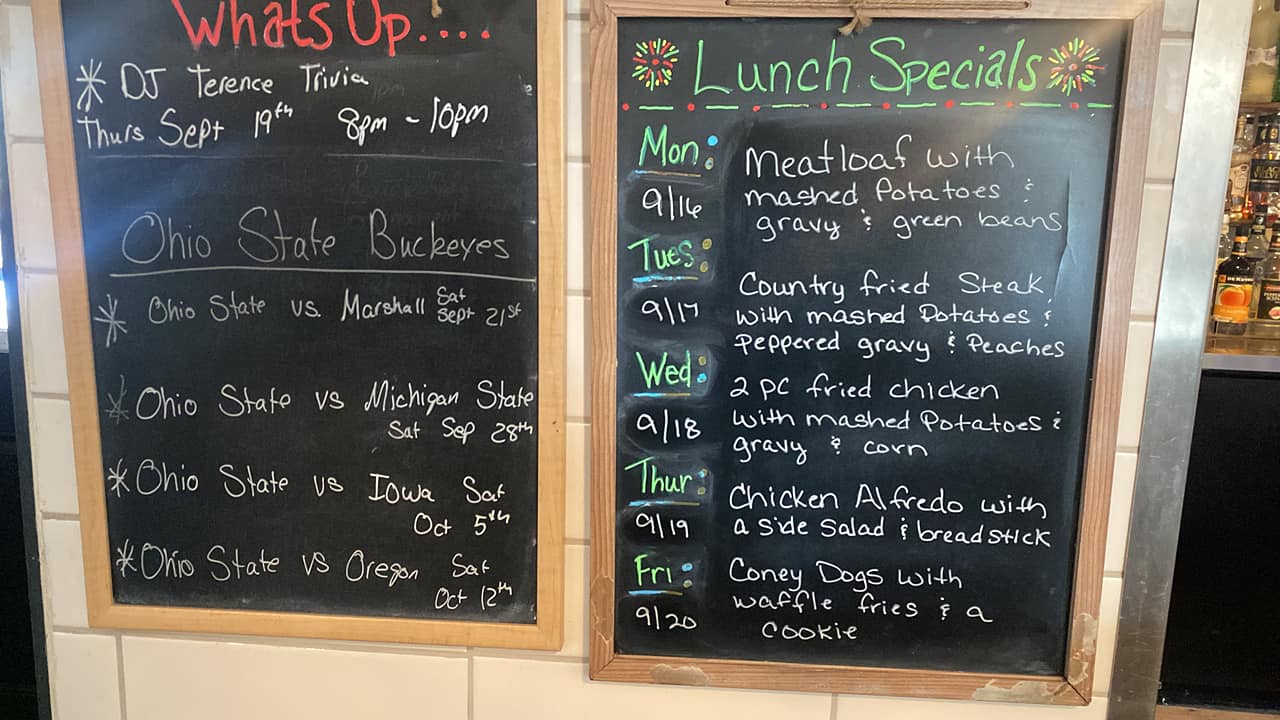 Whats Up....
* DJ Terence Trivia
Thurs Sept 19th 8pm - 10pm
Ohio State Buckeyes
* Ohio State vs. Marshall Sat Sept 21st
* Ohio State vs Michigan State
Sat Sep 28th
* Ohio State vs Iowa Sat
Oct 5th
* Ohio State vs Oregon Sat
Oct 12th
Lunch Specials
Mon:
9/16
Meatloaf with
mashed Potatoes &
gravy & green beans
Tues:
9/17
Country fried Steak
with mashed Potatoes &
Peppered gravy & Peaches
Wed:
9/18
2 pc fried chicken
with mashed Potatoes &
gravy & corn
Thur:
9/19
Chicken Alfredo with
a side salad & breadstick
Fri:
9/20
Coney Dogs with
waffle fries & a
cookie